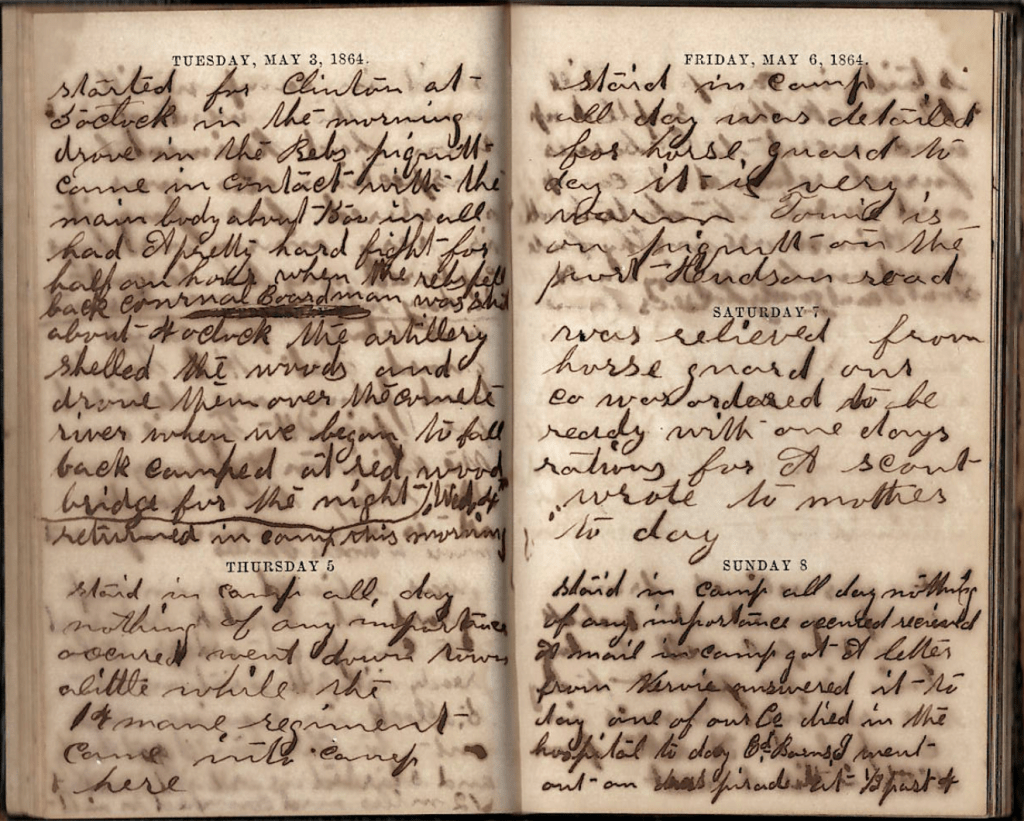 TUESDAY, MAY 3, 1864.
started for Clinton at
3 oclock in the morning
drove in the Rebs piquitt
came in contact with the
main body about 1500 in all
had A pretty hard fight for
half an hour when the rebs fell
back Cournal Boardman was shot
about 4 oclock the artillery
shelled the woods and
drove them over the comete
river when we began to fall
back camped at red wood
bridge for the night / Wed. 4
returned in camp this morning
THURSDAY 5
staid in camp all day
nothing of any importance
occured went down town
alittle while the
1st mane regiment
came into camp
here
FRIDAY, MAY 6, 1864.
staid in camp
all day was detailed
for horse guard to
day it is very
warm Tomie is
on piquitt on the
port Hudson road
SATURDAY 7
was relieved from
horse guard our
co was ordered to be
ready with one days
rations for A scout
wrote to mother
to day
SUNDAY 8
staid in camp all day nothing
of any importance occured recieved
A mail in camp got A letter
from Nervie answered it to
day one of our Co died in the
hospital to day Ed Barns went
out on dress pirade at ½ past 4